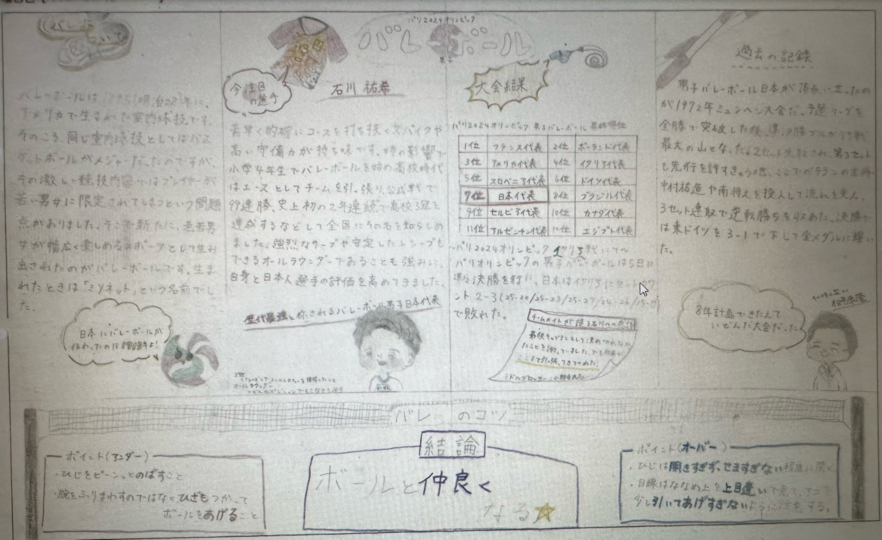 パリ2024オリンピック
バレーボール
男子
バレーボールは、1895(明治28)年に、
アメリカで生まれた室内球技です。
そのころ、同じ室内球技としてはバス
ケットボールがメジャーだったのですが、
その激しい競技内容ではプレイヤーが
若い男女に限定されてしまうという問題
点がありました。そこで新たに、老若男
女が幅広く楽しめるスポーツとして生み
出されたのがバレーボールです。生ま
れたときは「ミントネット」という名前でし
た。
日本にバレーボールが
伝わったのは
今注目
の選手
石川 祐希
素早く的確にコースを打ち抜くスパイクや
高い守備力が持ち味です。姉の影響で
小学4年生でバレーボールを始め高校時代
はエースとしてチームを引っ張り、公式戦で
99連勝、史上初の2年連続で高校3冠を
達成するなどして全国にその名を知らしめ
ました。強烈なサーブや安定したレシーブも
できるオールラウンダーであることも強みに、
自身と日本人選手の評価を高めてきました。
歴代最強といわれるバレーボール男子日本代表
大会結果
パリ2024オリンピック 男子バレーボール 最終順位
1位 フランス代表 2位 ポーランド代表
3位 アメリカ代表 4位 イタリア代表
5位 スロベニア代表 6位 ドイツ代表
7位 日本代表 8位 ブラジル代表
9位 セルビア代表 10位 カナダ代表
11位 アルゼンチン代表 12位 エジプト代表
パリオリンピックの男子バレーボールは5日に
準々決勝を行い、日本はイタリアにセットカウ
ント2-3
で敗れた。
過去の記録
男子バレーボール日本が頂点に立ったの
が1972年ミュンヘン大会だ。予選リーグを
全勝で突破した後、準決勝ブルガリア戦が
最大の山となった。2セット先取され、第3セット
も先行を許すきゅう地。ここでベテランの
中村祐造や南将之を投入して流れを変え、
3セット連取で逆転勝ちを収めた。決勝で
は東ドイツを3-1で下して金メダルに輝い
た。
8年計画できたえて
いどんだ大会だった。
松平康隆
バレーのコツ
ポイント(アンダー)
・ひじをピーンとのばすこと
・腕をふりまわすのではなくひざをつかって
ボールをあげること
結論
ボールと仲良く
なる☆
ポイント(オーバー)
・ひじは開きすぎず、せますぎない程度に開く
・目線はななめ上を上目遣いで見て、アゴを
少し引いてあげすぎないように注意する。